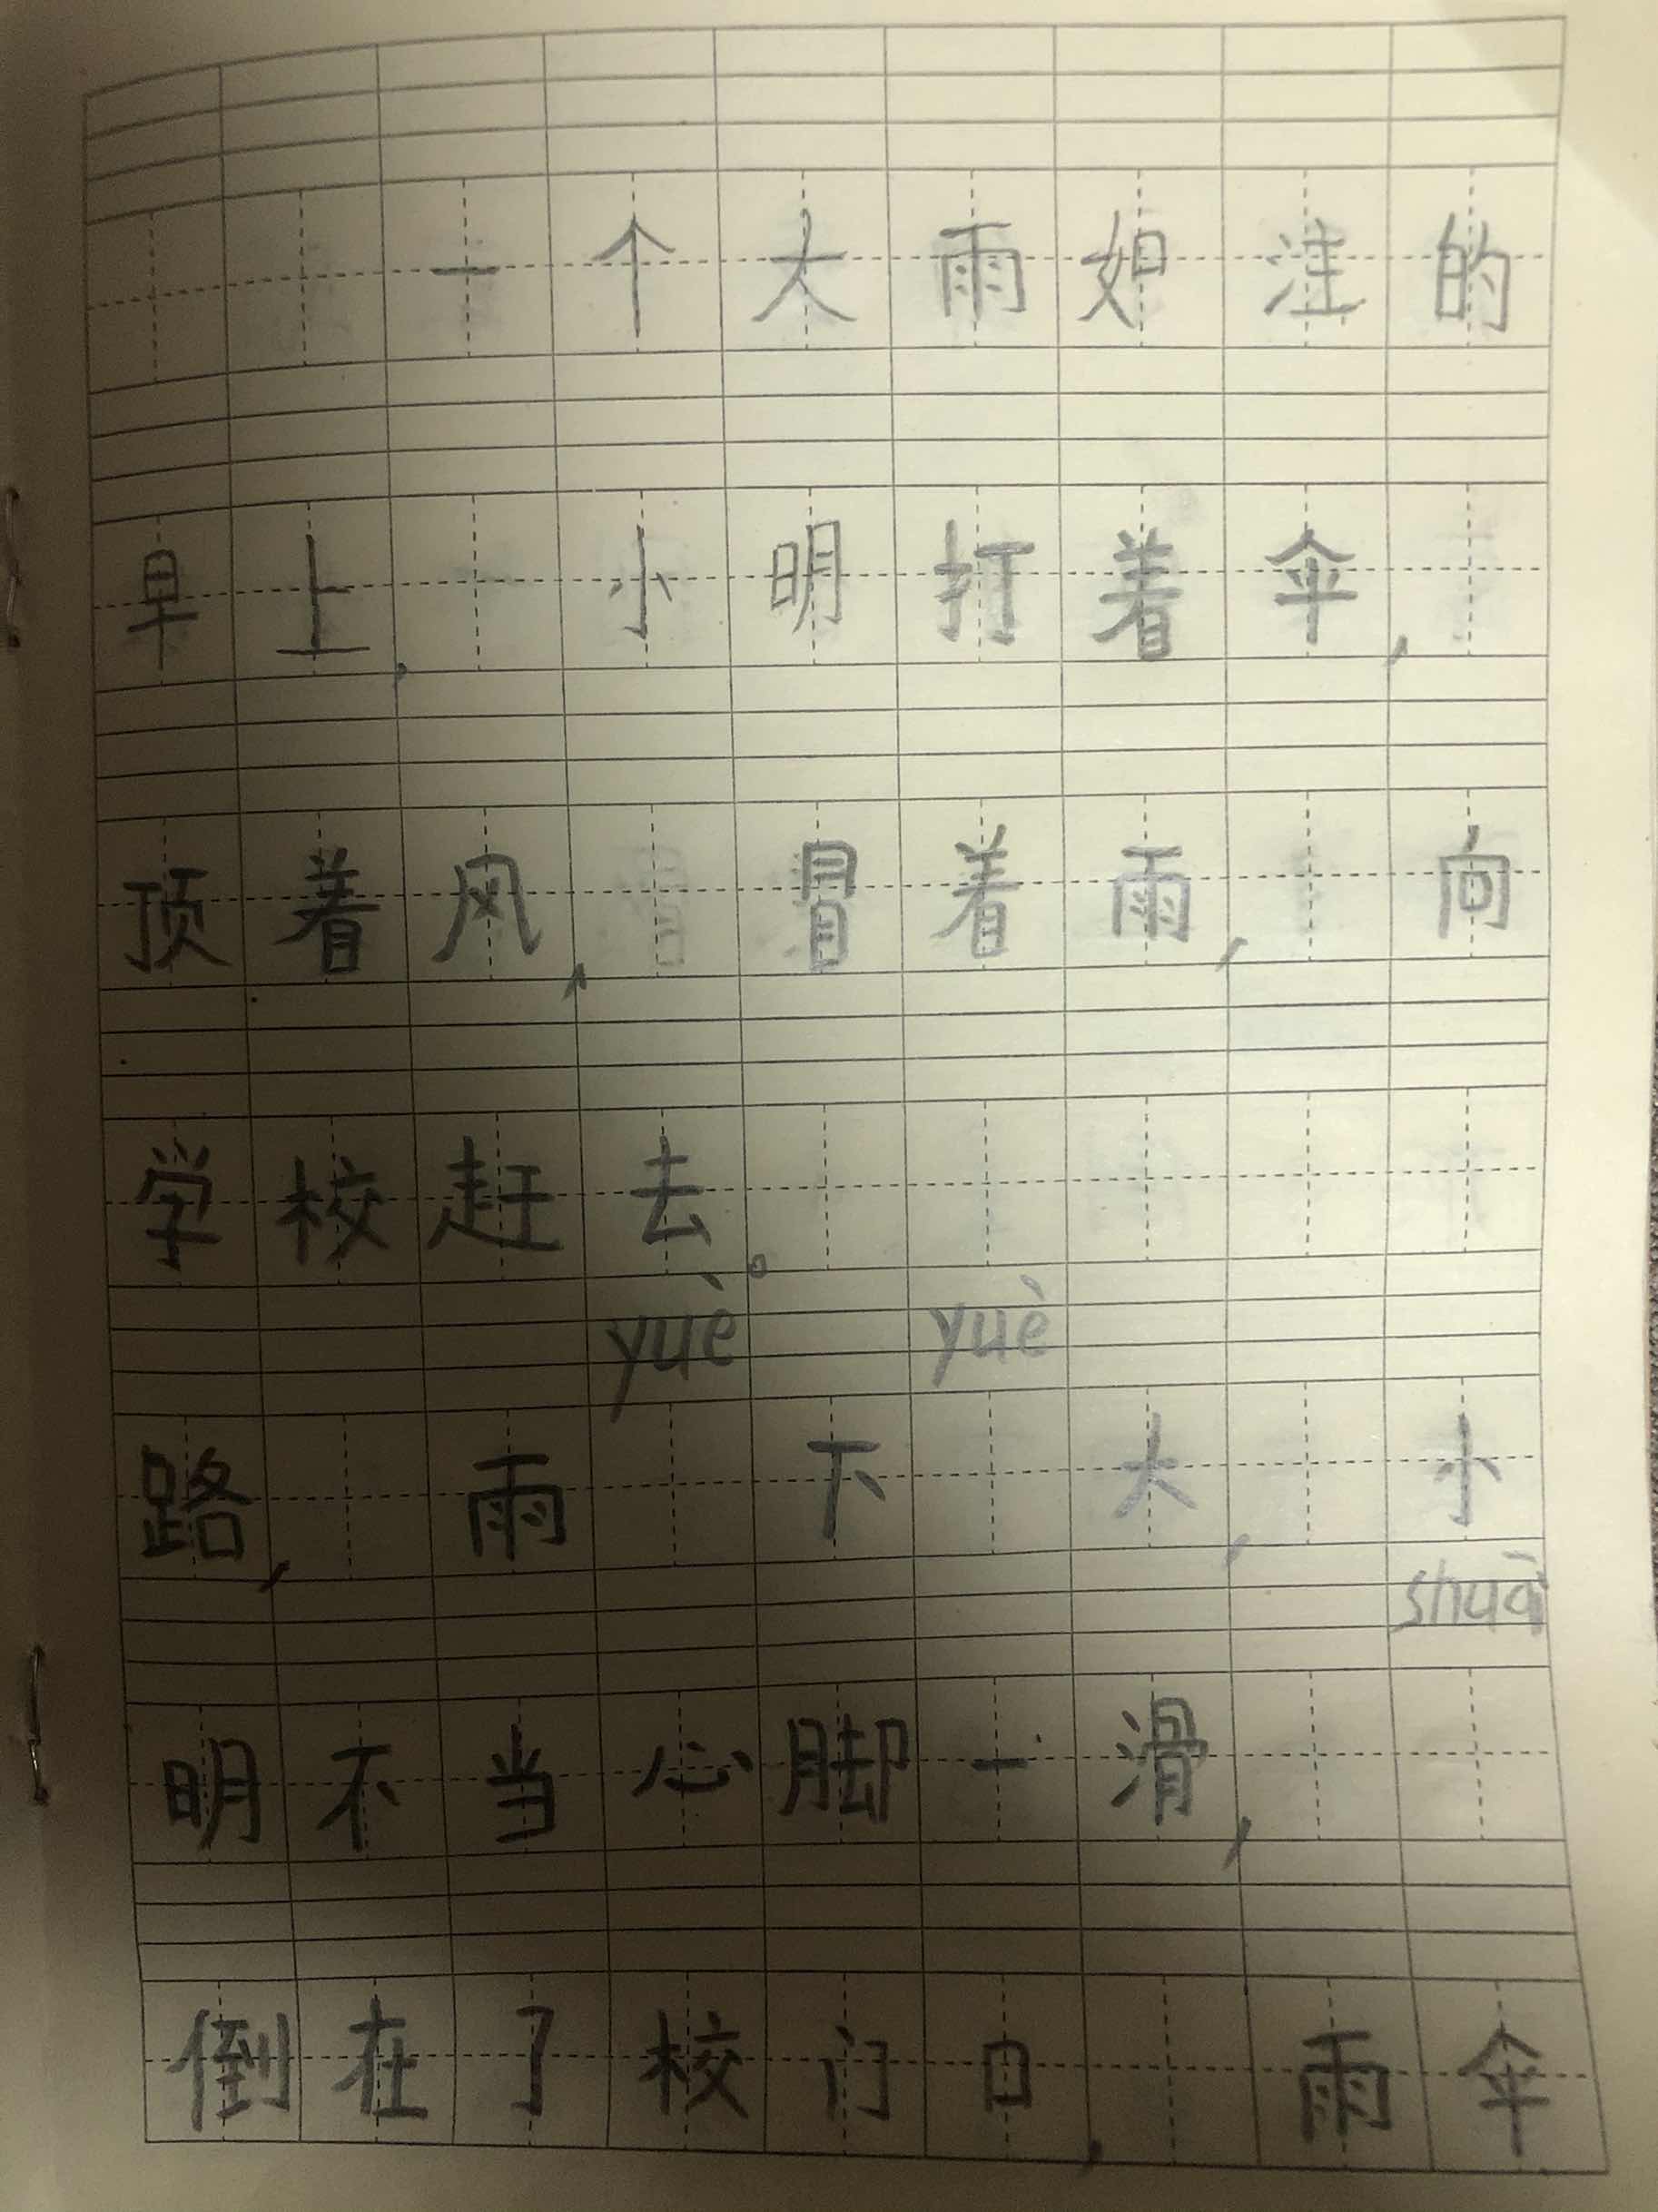 一个大雨如洼的
早上，小明打着伞，
顶着风，冒着雨，向
学校赶去。
yuè yuè
路，雨 下 大，小
shuāi
明不当心脚一滑，
倒在了校门口，雨伞